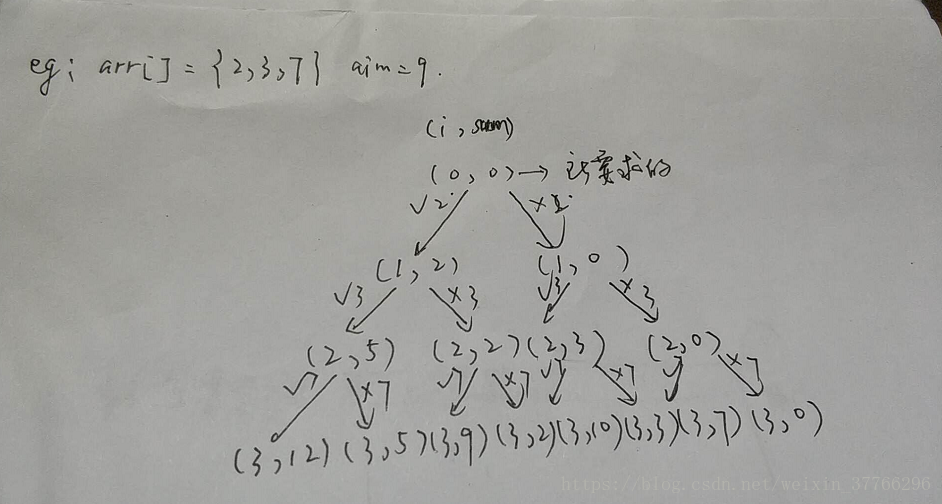 eg: arr[] = {2,3,7} aim=9.
(i, sum)
(0, 0)→ 要求的
√2 ×2
(1, 2) (1, 0)
√3 ×3 √3 ×3
(2, 5) (2, 2) (2, 3) (2, 0)
√7 ×7 √7 ×7 √7 ×7 √7 ×7
(3, 12) (3, 5) (3, 9) (3, 2) (3, 10) (3, 3) (3, 7) (3, 0)
https://blog.csdn.net/weixin_37766296